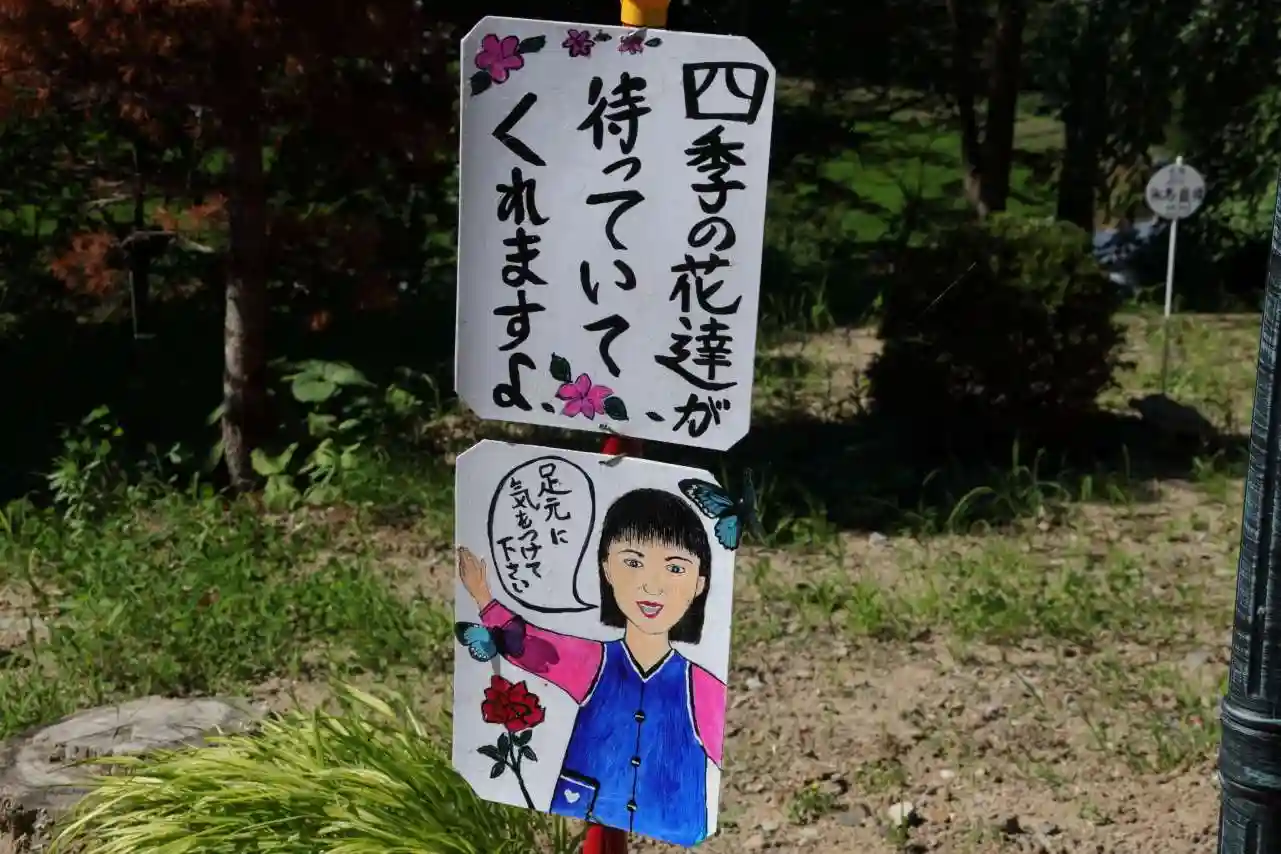 四季の花達が、
待っていて
くれますよ、
足元に
気をつけて
下さい